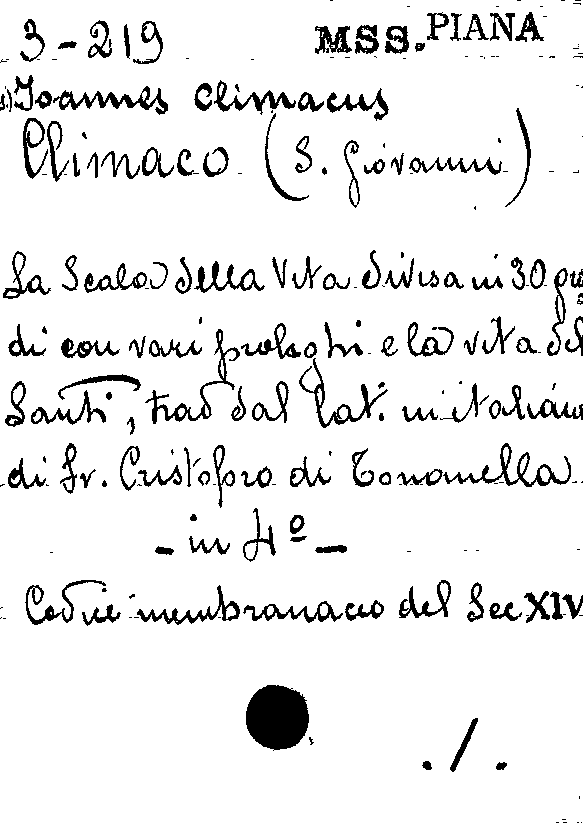 3-219 MSS. PIANA
Ioannes Climacus
Climaco (S. Giovanni)
La Scala della Vita divisa in 30 gra
di con vari prologhi e la vita del
Santi, trad dal lat. in italiano
di Fr. Cristoforo di
- in 4º -
Codice membranaceo del Sec XIV
./.